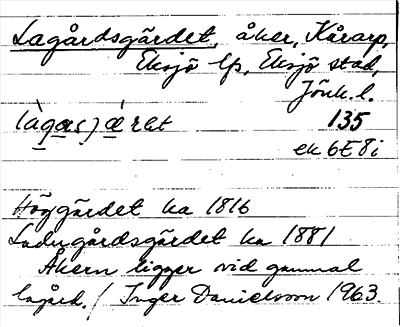 Lagårdsgärdet, åker, Kårarp,
Eksjö lfs, Eksjö stad,
Jönk. l.
135
ek 6E8i
Höggärdet ka 1816
Ladugårdsgärdet ka 1881
Åkern ligger vid gammal
lagård. / Inger Danielsson 1963.